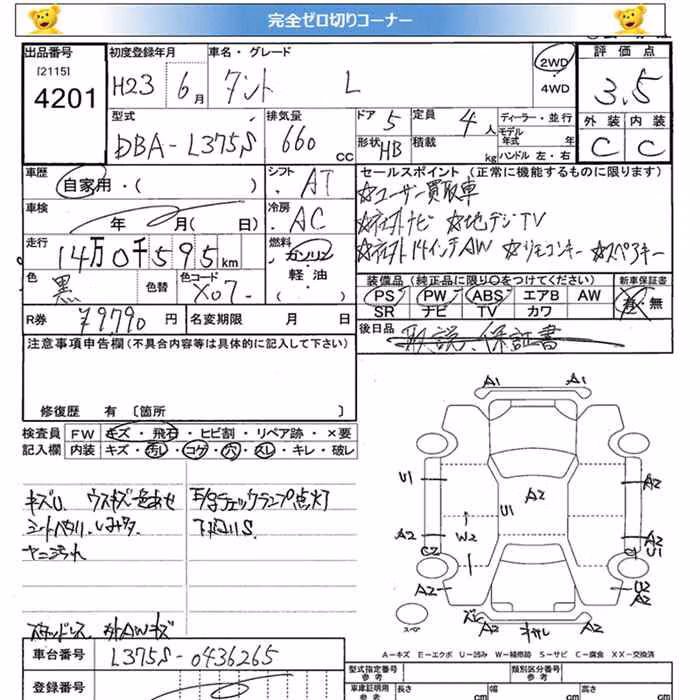 完全ゼロ切りコーナー
出品番号 初度登録年月 車名・グレード 2WD 評価点
[2115] 4201 H23 6月 タント L 4WD 3.5
型式 排気量 ドア 5 定員 4人 ディーラー・並行 外装 内装
DBA-L375S 660cc 形状 HB 積載 kg モデル年式 年 ハンドル 左・右 C C
車歴 シフト セールスポイント (正常に機能するものに限ります)
自家用・( ) AT ☆ユーザー買取車
車検 冷房 ☆ナビ ☆地デジTV
年 月( 日) AC ☆14インチAW ☆リモコンキー ☆スペアキー
走行 14万0千595km 燃料 ガソリン
軽油 ( )
装備品 (純正品に限り○をつけてください) 新車保証書
色 黒 色替 色コード X07
PS PW ABS エアB AW 有・無
SR ナビ TV カワ
R券 79790円 名変期限 月 日
後日品 取説、保証書
注意事項申告欄(不具合内容等は具体的に記入して下さい)
修復歴 有 〔箇所 〕
検査員 FW キズ・飛石・ヒビ割・リペア跡・×要
記入欄 内装 キズ・汚レ・コゲ・穴・スレ・キレ・破レ
キズU ウスキズ色あせ
シートヘタリ、しみ
ヤニ汚れ
チェックランプ点灯
スタッドレス、外AWキズ
A1 A1
U1 A2 U1 A2
A2 C2 W2 A2 C1 U1
A2 U2 A2
スペア A2 A2
A-キズ E-エクボ U-凹み W-補修跡 S-サビ C-腐食 XX-交換済
車台番号 L375S-0436265
登録番号
型式指定番号 参考 類別区分番号 参考
車庫証明用 参考 長さ 幅 高さ